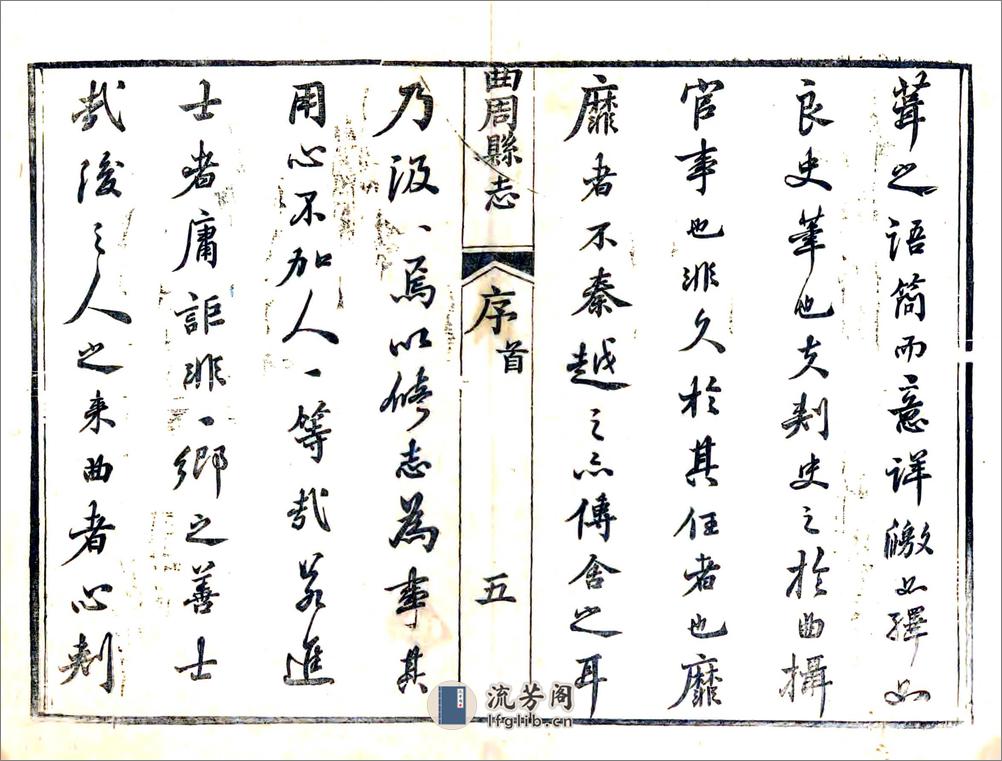 葺之語簡而意詳皦如繹如
良史筆也夫刺史之於曲攝
官事也非久於其任者也靡
靡者不秦越之亦傳舍之耳
曲周縣志
序首
五
乃汲〻焉以脩志為事其
用心不加人一等哉若進
士者庸詎非一鄉之善士
哉後之人之來曲者心刺
流芳阁
lfglib.cn